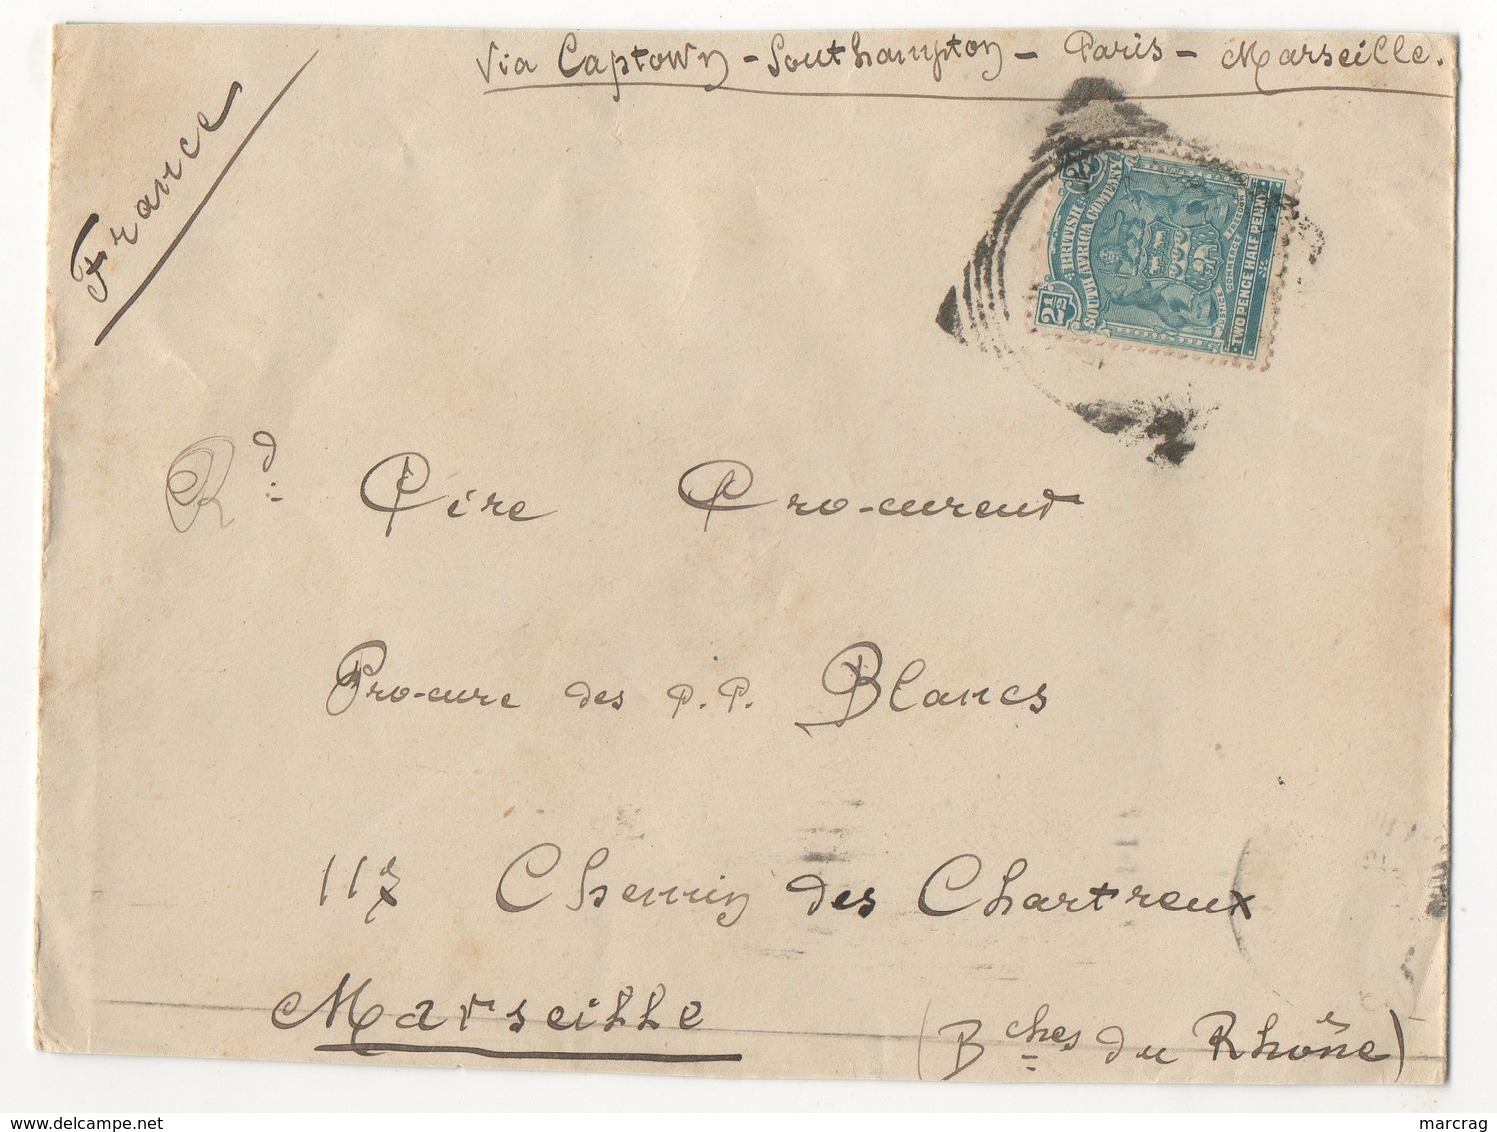 Via Captown - Southampton - Paris - Marseille.
France
2½
BRITISH
SOUTH AFRICA COMPANY
2½
JUSTICE COMMERCE FREEDOM
TWO PENCE HALF PENNY
Rd. Père Procureur
Procure des P.P. Blancs
117 Chemin des Chartreux
Marseille
(Bches du Rhône)
www.delcampe.net
marcrag